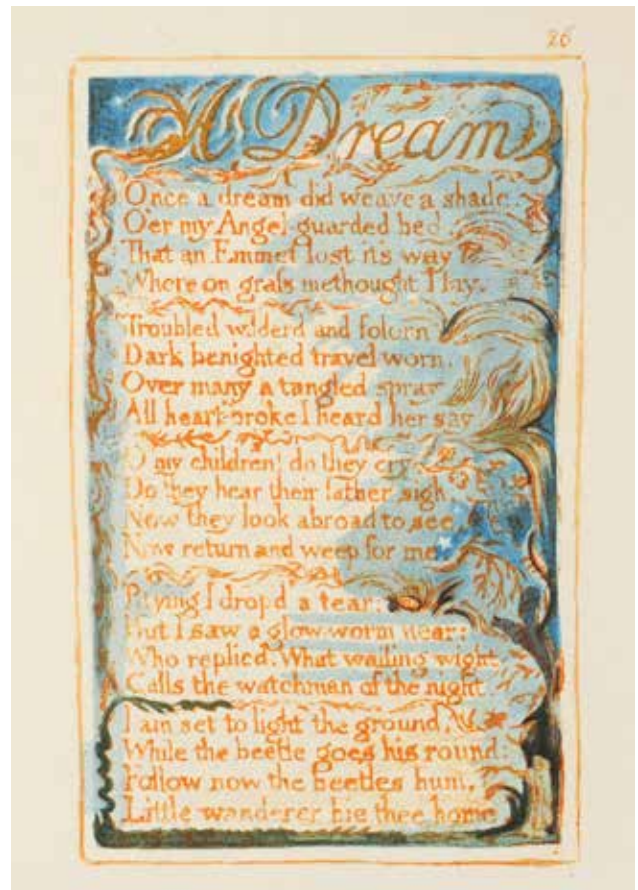 26
A Dream
Once a dream did weave a shade,
O'er my Angel-guarded bed,
That an Emmet lost its way
Where on grass methought I lay.
Troubled wilderd and folorn
Dark benighted travel-worn,
Over many a tangled spray
All heart-broke I heard her say.
O my children! do they cry
Do they hear their father sigh.
Now they look abroad to see,
Now return and weep for me.
Pitying I drop'd a tear:
But I saw a glow-worm near:
Who replied. What wailing wight
Calls the watchman of the night.
I am set to light the ground,
While the beetle goes his round:
Follow now the beetles hum,
Little wanderer hie thee home